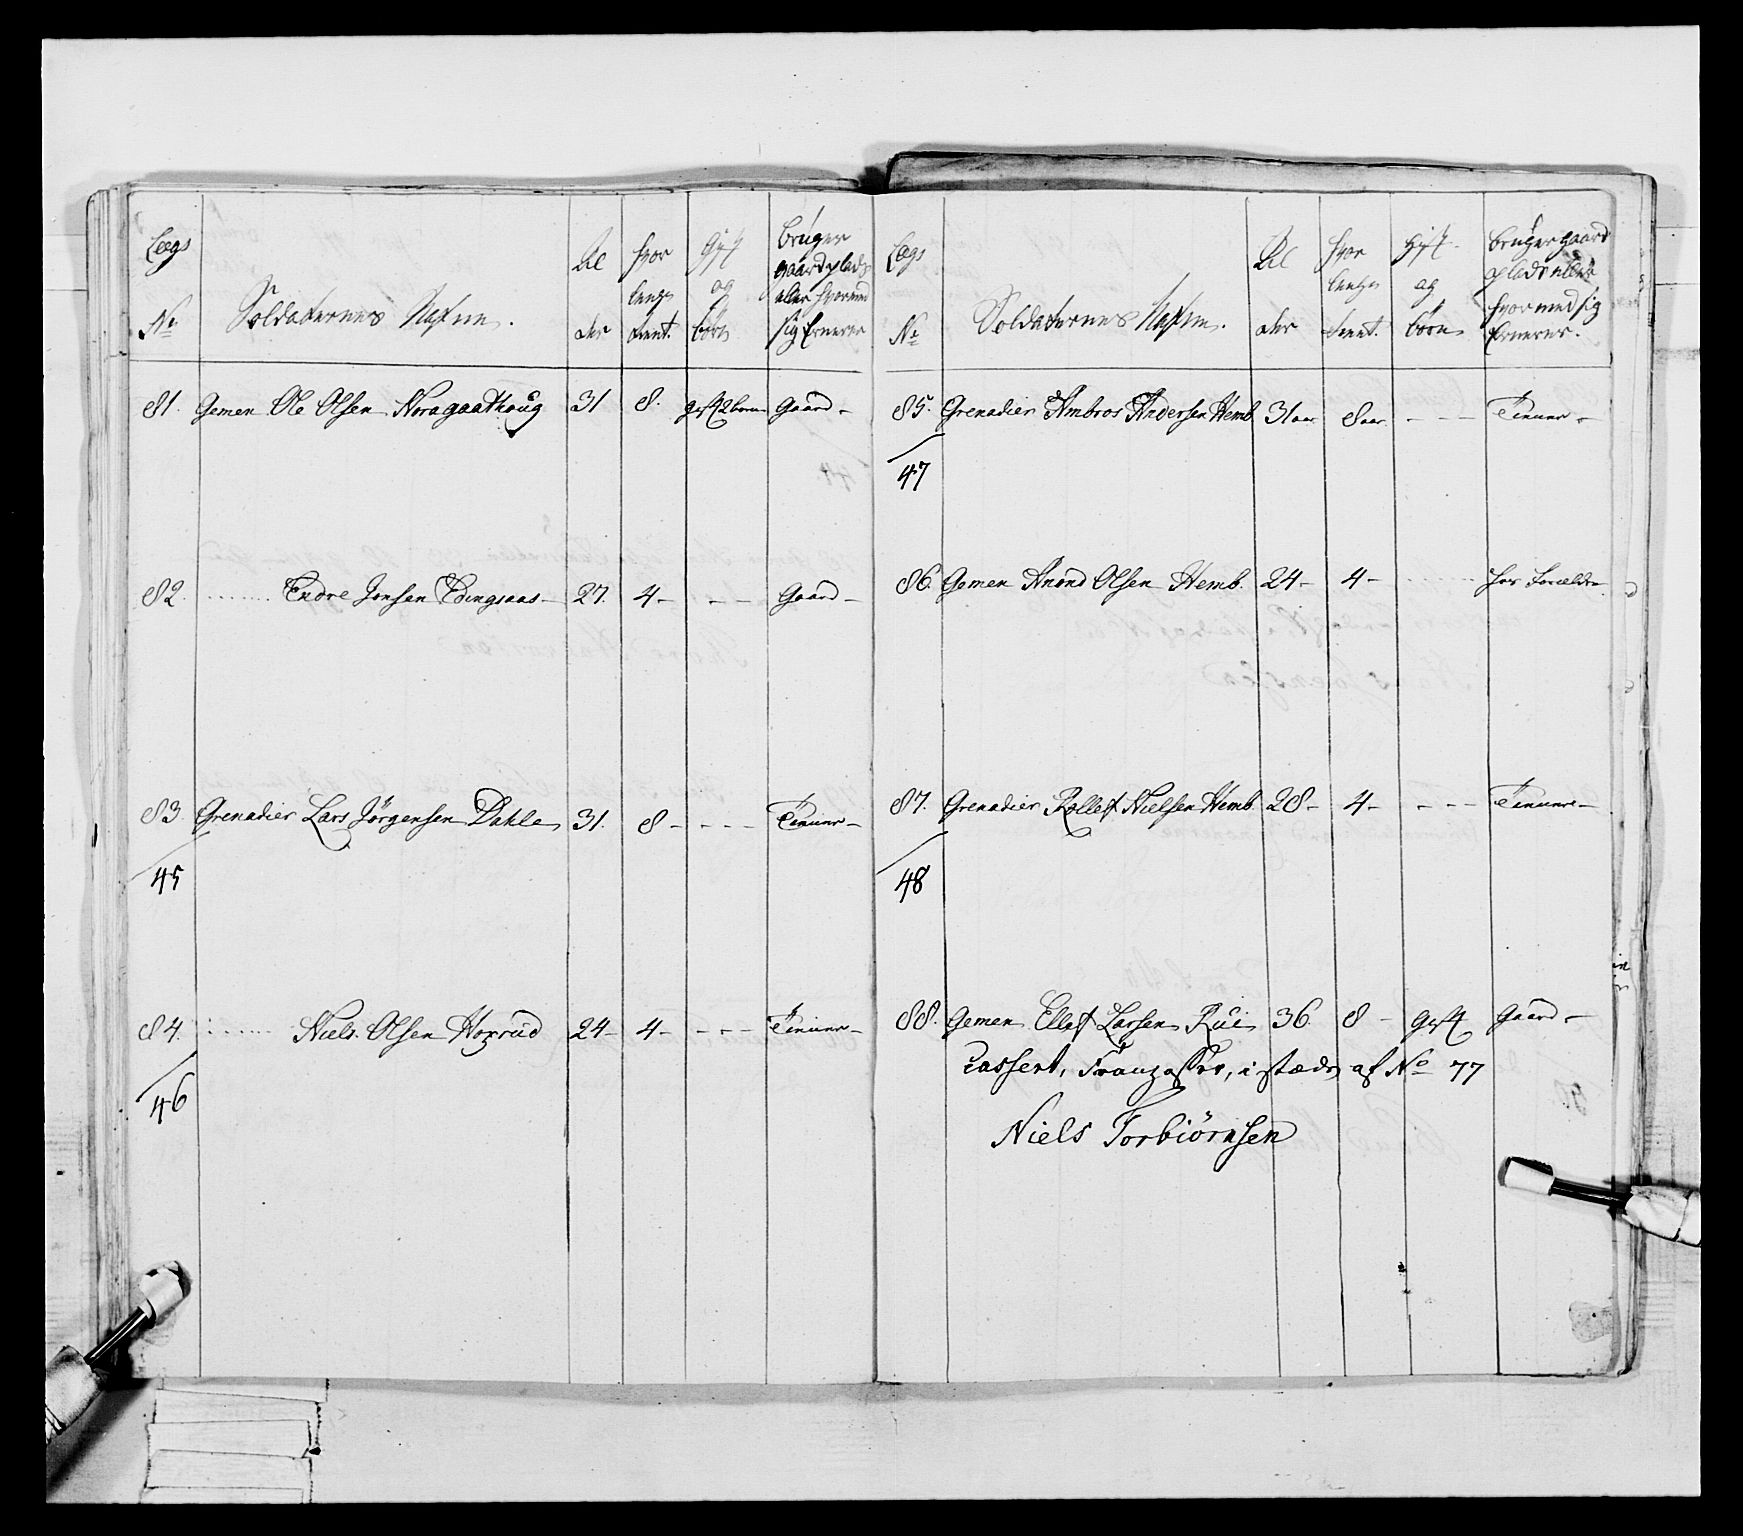 Lægs
No
Soldaternes Nafne.
Al
der
hvor
længe
tient.
gift
og
børn
bruger
gaard plads
eller hvormed
sig Ernerer
81. Gemen Ole Olsen Noragaathoug 31 8. gift 2 børn Gaard -
82. Endre Jonsen Edingsaas - 27. 4 - - - - Gaard -
83. Grenadier Lars Jörgensen Dahle 31. 8 - - - - Tienner -
45
84. Niels Olsen 24 - 4 - - - - Tienner -
46
Lægs
No
Soldaternes Nafne.
Al
der
hvor
længe
tient.
gift
og
børn
bruger gaard
plads eller
hvormed sig
Ernerer.
85. Grenadier Ambros Andersen Hemb 31 aar 8 aar - - - Tienner -
47
86. Gemen Anond Olsen Hemb. 24 - 4 - hos Forældre
87. Grenadier Rollef Nielsen Hemb 28 - 4 - - - - Tienner -
48
88. Gemen Ellef Larsen Rui 36. 8 - gift Gaard -
Cassert, i stæde af No 77
Niels Torbiörnsen